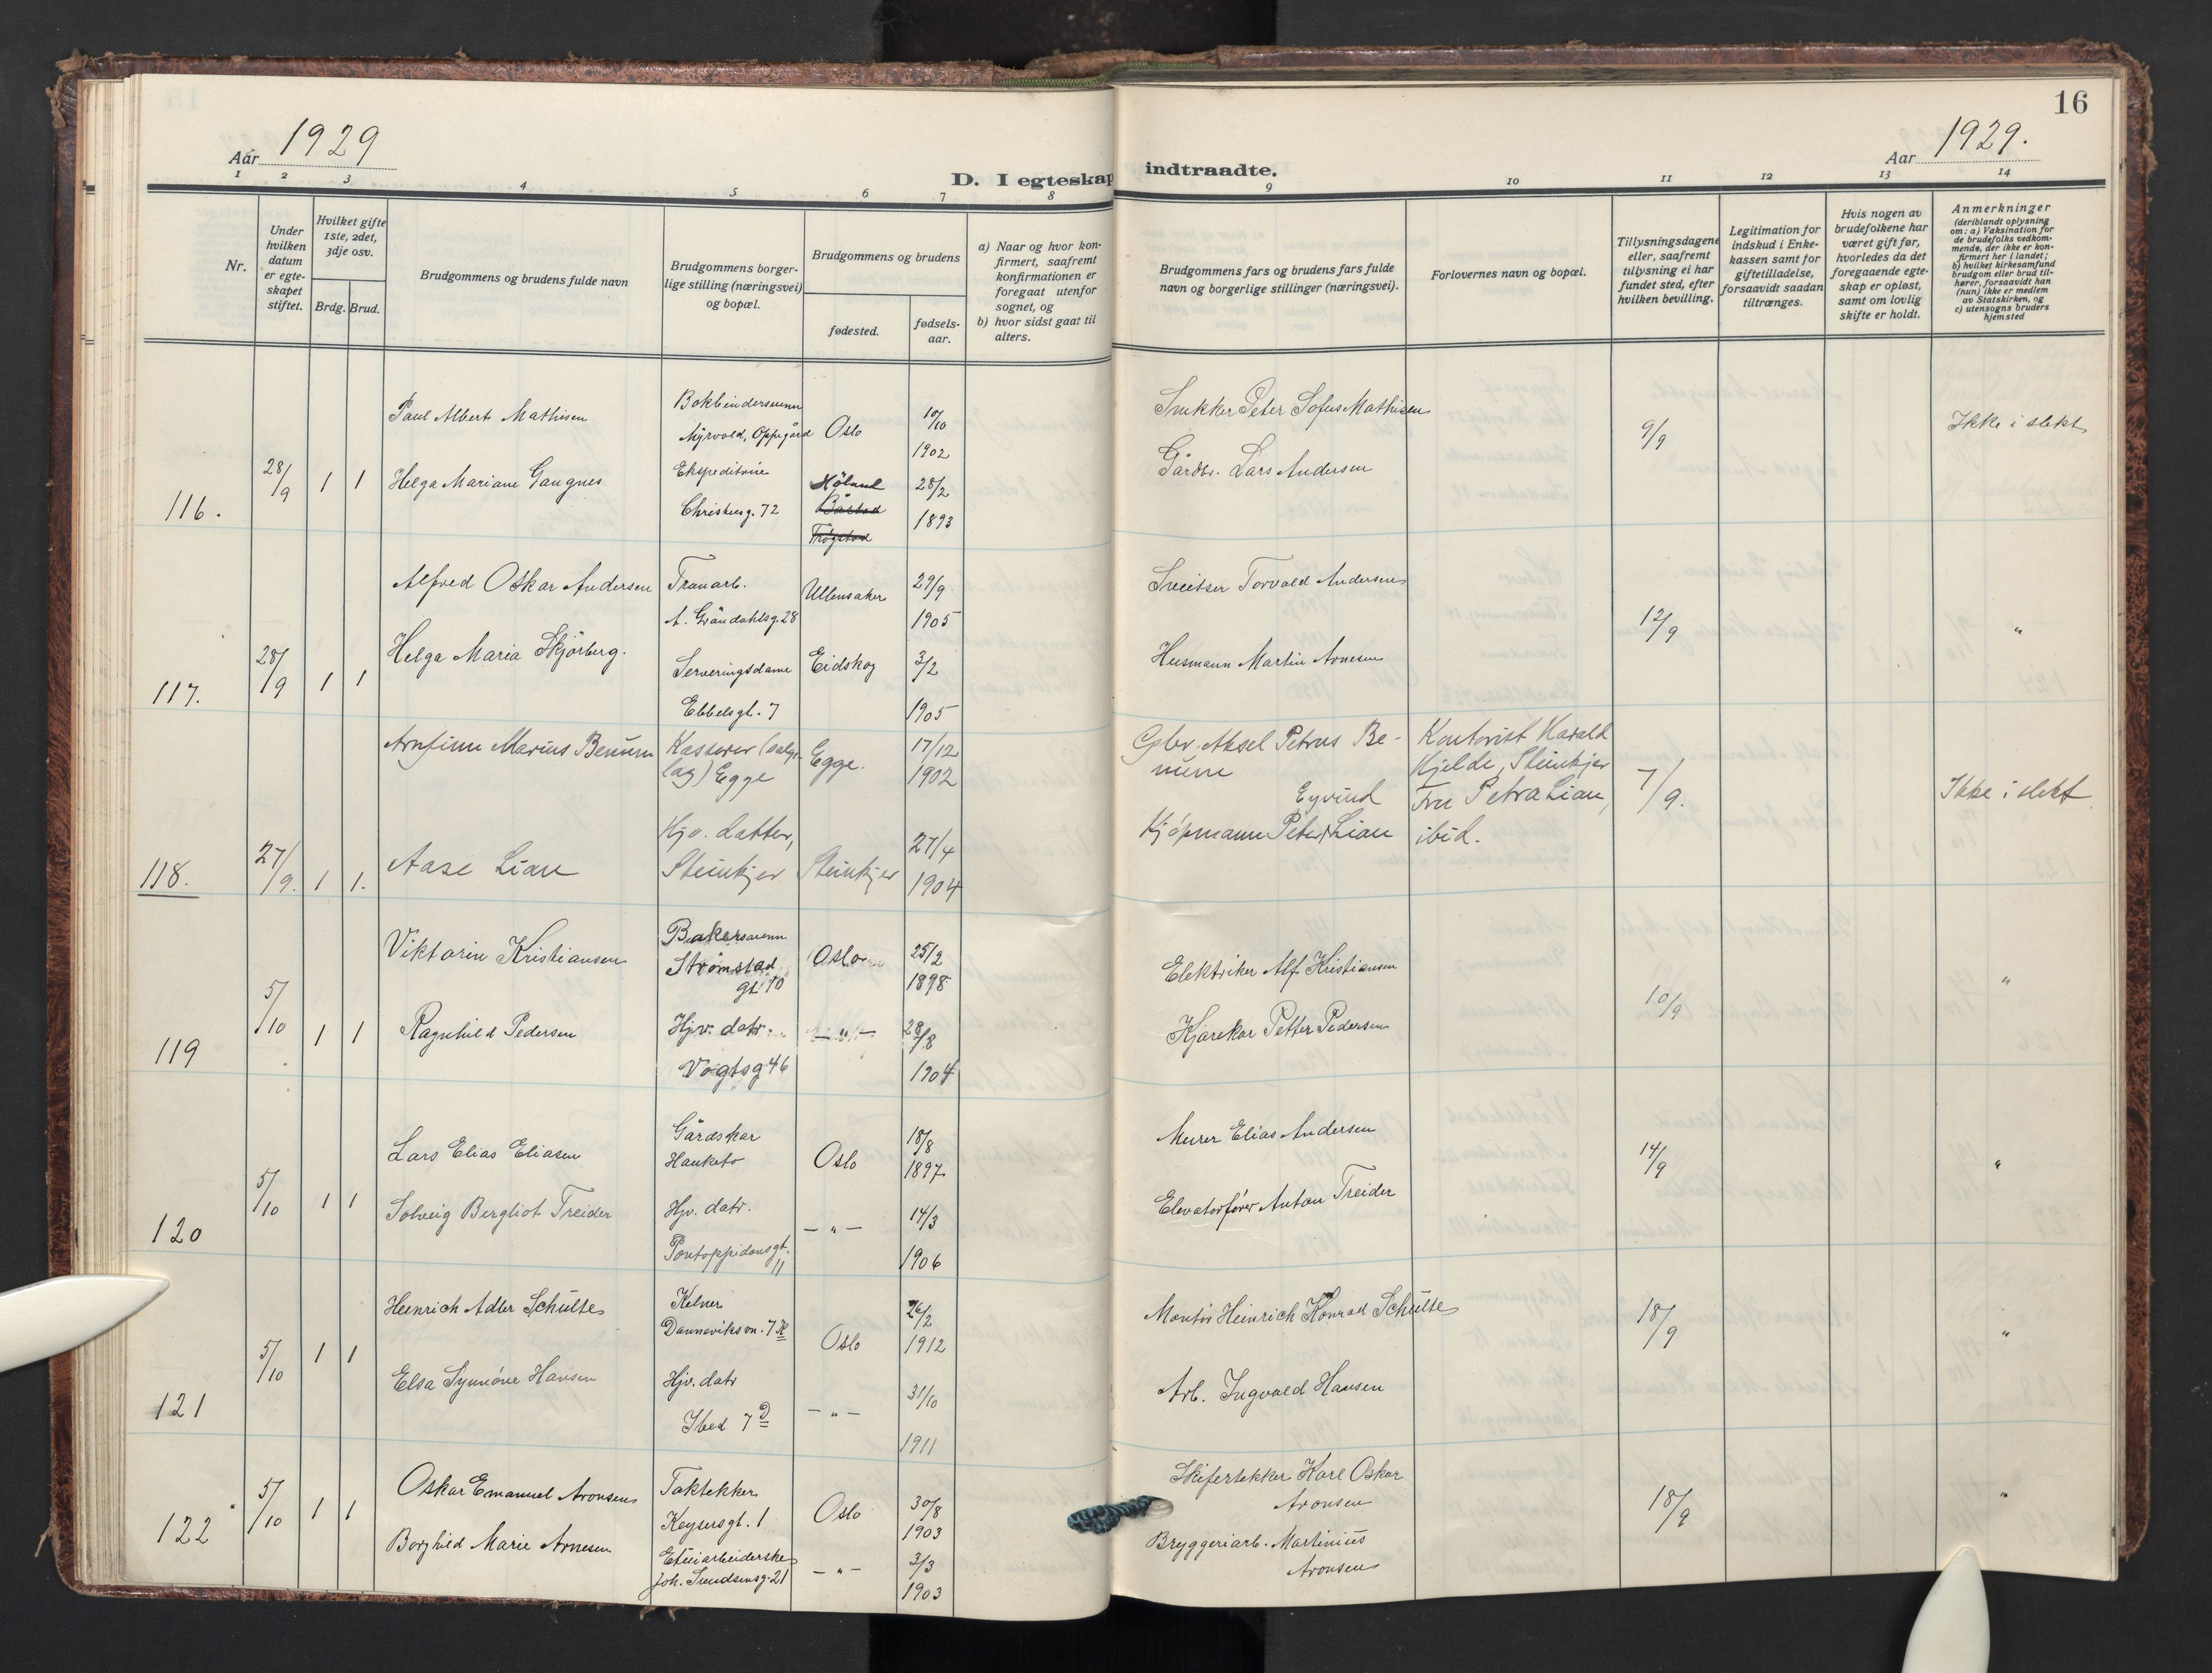 15
16
Aår 1929
Aar 1929.
D. I egteskap
indtraadte.
1 2 3 4 5 6 7 8
9 10 11 12 13 14
Nr.
Under hvilken datum er egteskapet stiftet.
Hvilket gifte 1ste, 2det, 3dje osv.
Brdg. Brud.
Brudgommens og brudens fulde navn
Brudgommens borgerlige stilling (næringsvei) og bopæl.
Brudgommens og brudens
fødested.
fødselsaar.
a) Naar og hvor konfirmert, saafremt konfirmationen er foregaat utenfor sognet, og
b) hvor sidst gaat til alters.
Brudgommens fars og brudens fars fulde navn og borgerlige stillinger (næringsvei).
Forlovernes navn og bopæl.
Tillysningsdagene eller, saafremt tillysning ei har fundet sted, efter hvilken bevilling.
Legitimation for indskud i Enkekassen samt for giftetilladelse, forsaavidt saadan tiltrænges.
Hvis nogen av brudefolkene har været gift før, hvorledes da det foregaaende egteskap er opløst, samt om lovlig skifte er holdt.
Anmerkninger
(deriblandt oplysning om: a) Vaksination for de brudefolks vedkommende, der ikke er konfirmert her i landet; b) hvilket kirkesamfund brudgom eller brud tilhører, forsaavidt han (hun) ikke er medlem av Statskirken, og c) utensogns bruders hjemsted
116. 28/9 1 1
Paul Albert Mathisen
Bokbindersvenn
Myrvold, Oppegård
Oslo
10/10
1902
Snekker Peter Sofus Mathisen
9/9
Ikke i slekt
Helga Mariane Gaugnes
Ekspeditrise
Christiesg. 72
Høland
Båstad
Trøgstad
28/2
1893
Gårdbr. Lars Andersen
117. 28/9 1 1
Alfred Oskar Andersen
Tranarb.
A. Gråndahlsg. 28
Ullensaker
29/9
1905
Sveitser Torvald Andersen
12/9
"
Helga Maria Skjörberg.
Serveringsdame
Ebbelsgt. 7
Eidskog
3/2
1905
Husmann Martin Arnesen
118. 27/9. 1 1.
Arnfinn Marius Benum
Kasserer (salgslag) Egge
Egge.
17/12
1902
Gbr. Aksel Petrus Benum
Kontorist Harald
Kjelde, Steinkjer
Fru Petra Lian,
ibid.
7/9.
Ikke i slekt
Aase Lian
Hjv. datter,
Steinkjer
Steinkjer
27/4
1904
Eyvind
Kjøpmann Peter Lian
119 5/10 1 1
Viktorin Kristiansen
Bakersvenn
Strømstad
gt. 10
Oslo
25/2
1898
Elektriker Alf Kristiansen
10/9
"
Ragnhild Pedersen
Hjv. datr.
Vogtsg 46
— " —
28/8
1904
Kjørekar Petter Pedersen
120 5/10 1 1
Lars Elias Eliasen
Gårdskar
Hauketo
Oslo
18/8
1897
Murer Elias Andersen
14/9
"
Solveig Bergliot Treider
Hjv. datr.
Pontoppidansgt.
11
— " —
14/3
1906
Elevatorfører Anton Treider
121 5/10 1 1
Heinrich Adler Schulte
Kelner
Danneviksvn. 7
Oslo
26/2
1912
Montør Heinrich Konrad Schulte
18/9
"
Elsa Synnöve Hansen
Hjv. datr
Ibed 7 D
— " —
31/10
1911
Arb. Ingvald Hansen
122 5/10 1 1
Oskar Emanuel Aronsen
Taktekker
Keysersgt. 1
Oslo
30/8
1903
Skifertekker Karl Oskar
Aronsen
18/9
"
Borghild Marie Arnesen
Etuiarbeiderske
Joh. Svendsensg. 21
— " —
3/3
1903
Bryggeriarb. Martinius
Aronsen